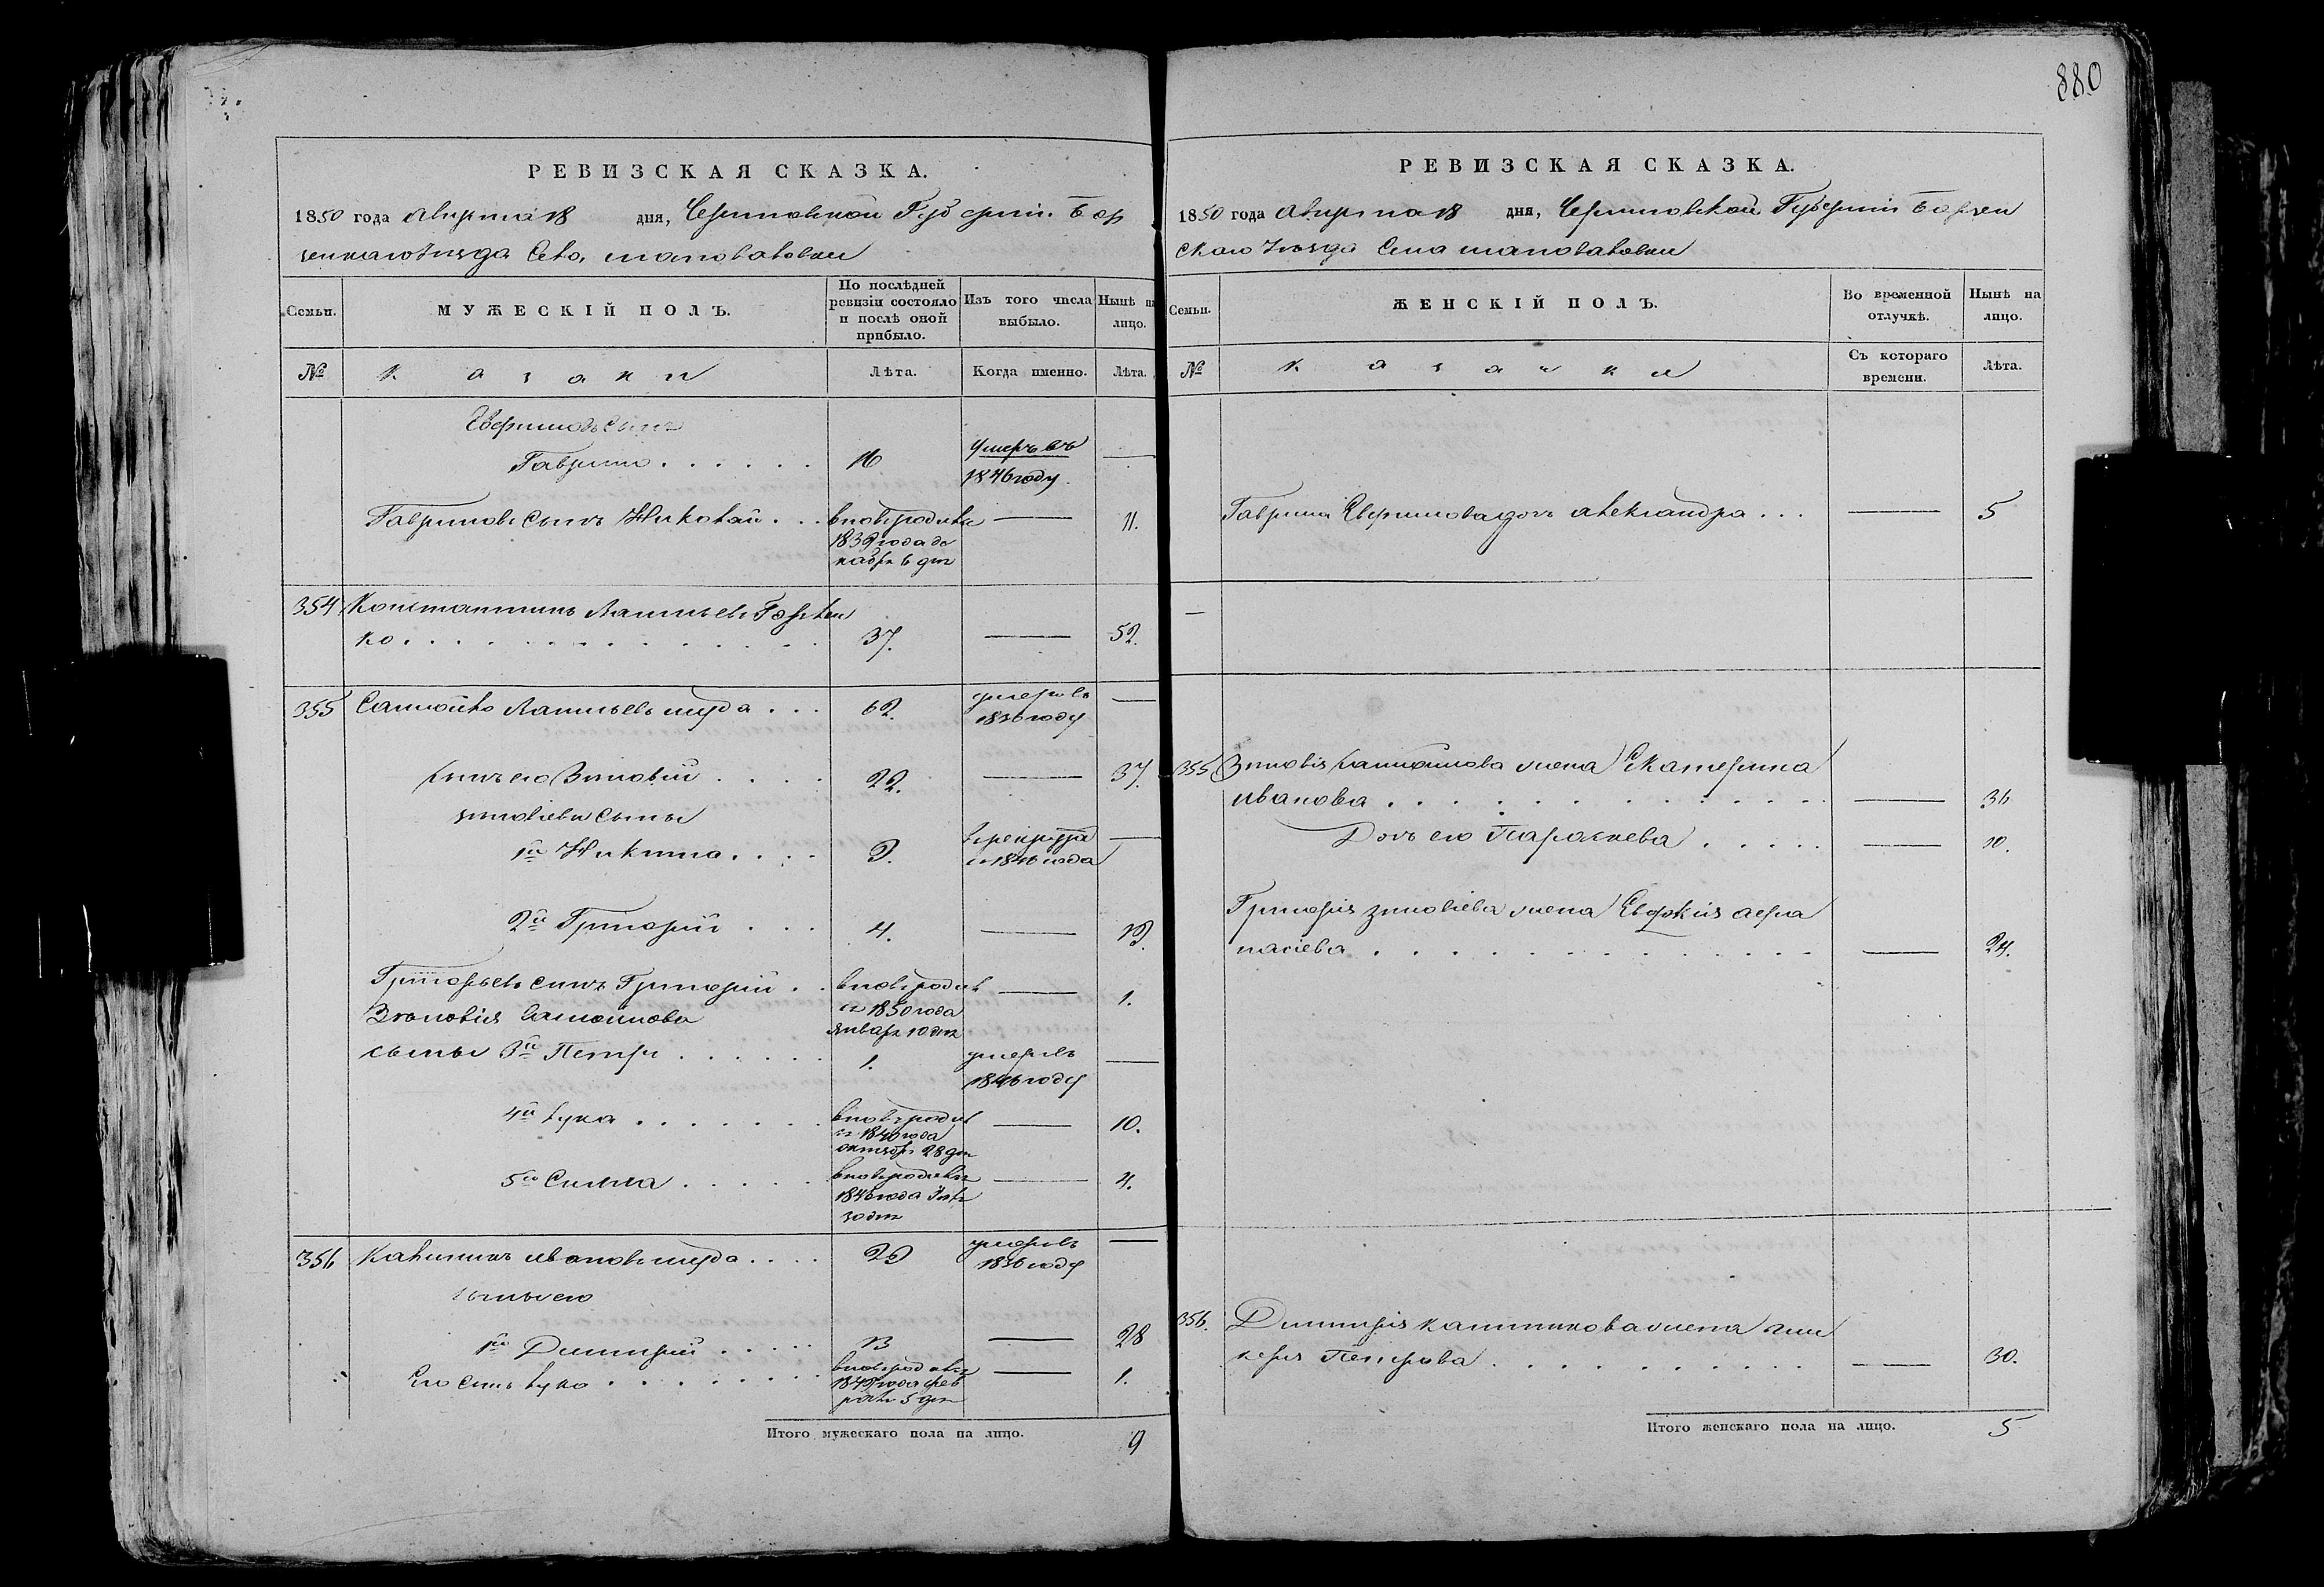 880
РЕВИЗСКАЯ СКАЗКА.
1850 года августа 18 дня, Черниговской Губернiи Бор
зенскаго уезда Села шаповаловки
Семьи.
МУЖЕСКІЙ ПОЛЪ.
По послѣдней ревизіи состояло и послѣ оной прибыло.
Изъ того числа выбыло.
Нынѣ на лицо.
№
казаки
Лѣта.
Когда именно.
Лѣта.
сынъ
Гаврило 16 умеръ въ 1846 году —
Гавриловъ сынъ Николай вновь родился 1839 года декабря 6 дня — 11.
354 Константинъ
ко 37. — 52.
355 Самойло шуда 62. умеръ въ 1836 году —
сынъ его Зиновій 22. — 37.
зиновіевы сыны
1й Никита 9. въ рекрута
2й Григорій 4. — 19.
Григорьевъ сынъ Григорій вновь родился 1850 года января 10 дня — 1.
Зиновія Самойлова
сыны 3й Петръ 1. умеръ въ 1846 году —
4й Лука вновь родился 1840 года октября 28 дня — 10.
5й Сила вновь родился 1846 года 30 дня — 4.
356 Калиникъ ивановъ шуда 29 умеръ въ 1836 году —
сыны его
1й Димитрій 13 — 28
Его сынъ Лука вновь родился 1849 года февраля 5 дня — 1.
Итого мужескаго пола на лицо. 9
РЕВИЗСКАЯ СКАЗКА.
1850 года августа 18 дня, Черниговской Губерніи Борзен
скаго уезда Села шаповаловки
Семьи.
ЖЕНСКІЙ ПОЛЪ.
Во временной отлучкѣ.
Нынѣ на лицо.
№
казачки
Съ котораго времени.
Лѣта.
Гаврила дочь александра — 5
—
355 Зиновія Самойлова жена Екатерина
иванова — 36
Дочь его Параскева — 10.
Григорія зиновіева жена Евдокія афа
насіева — 24.
356. Димитрія калиникова жена
Петрова — 30.
Итого женскаго пола на лицо. 5